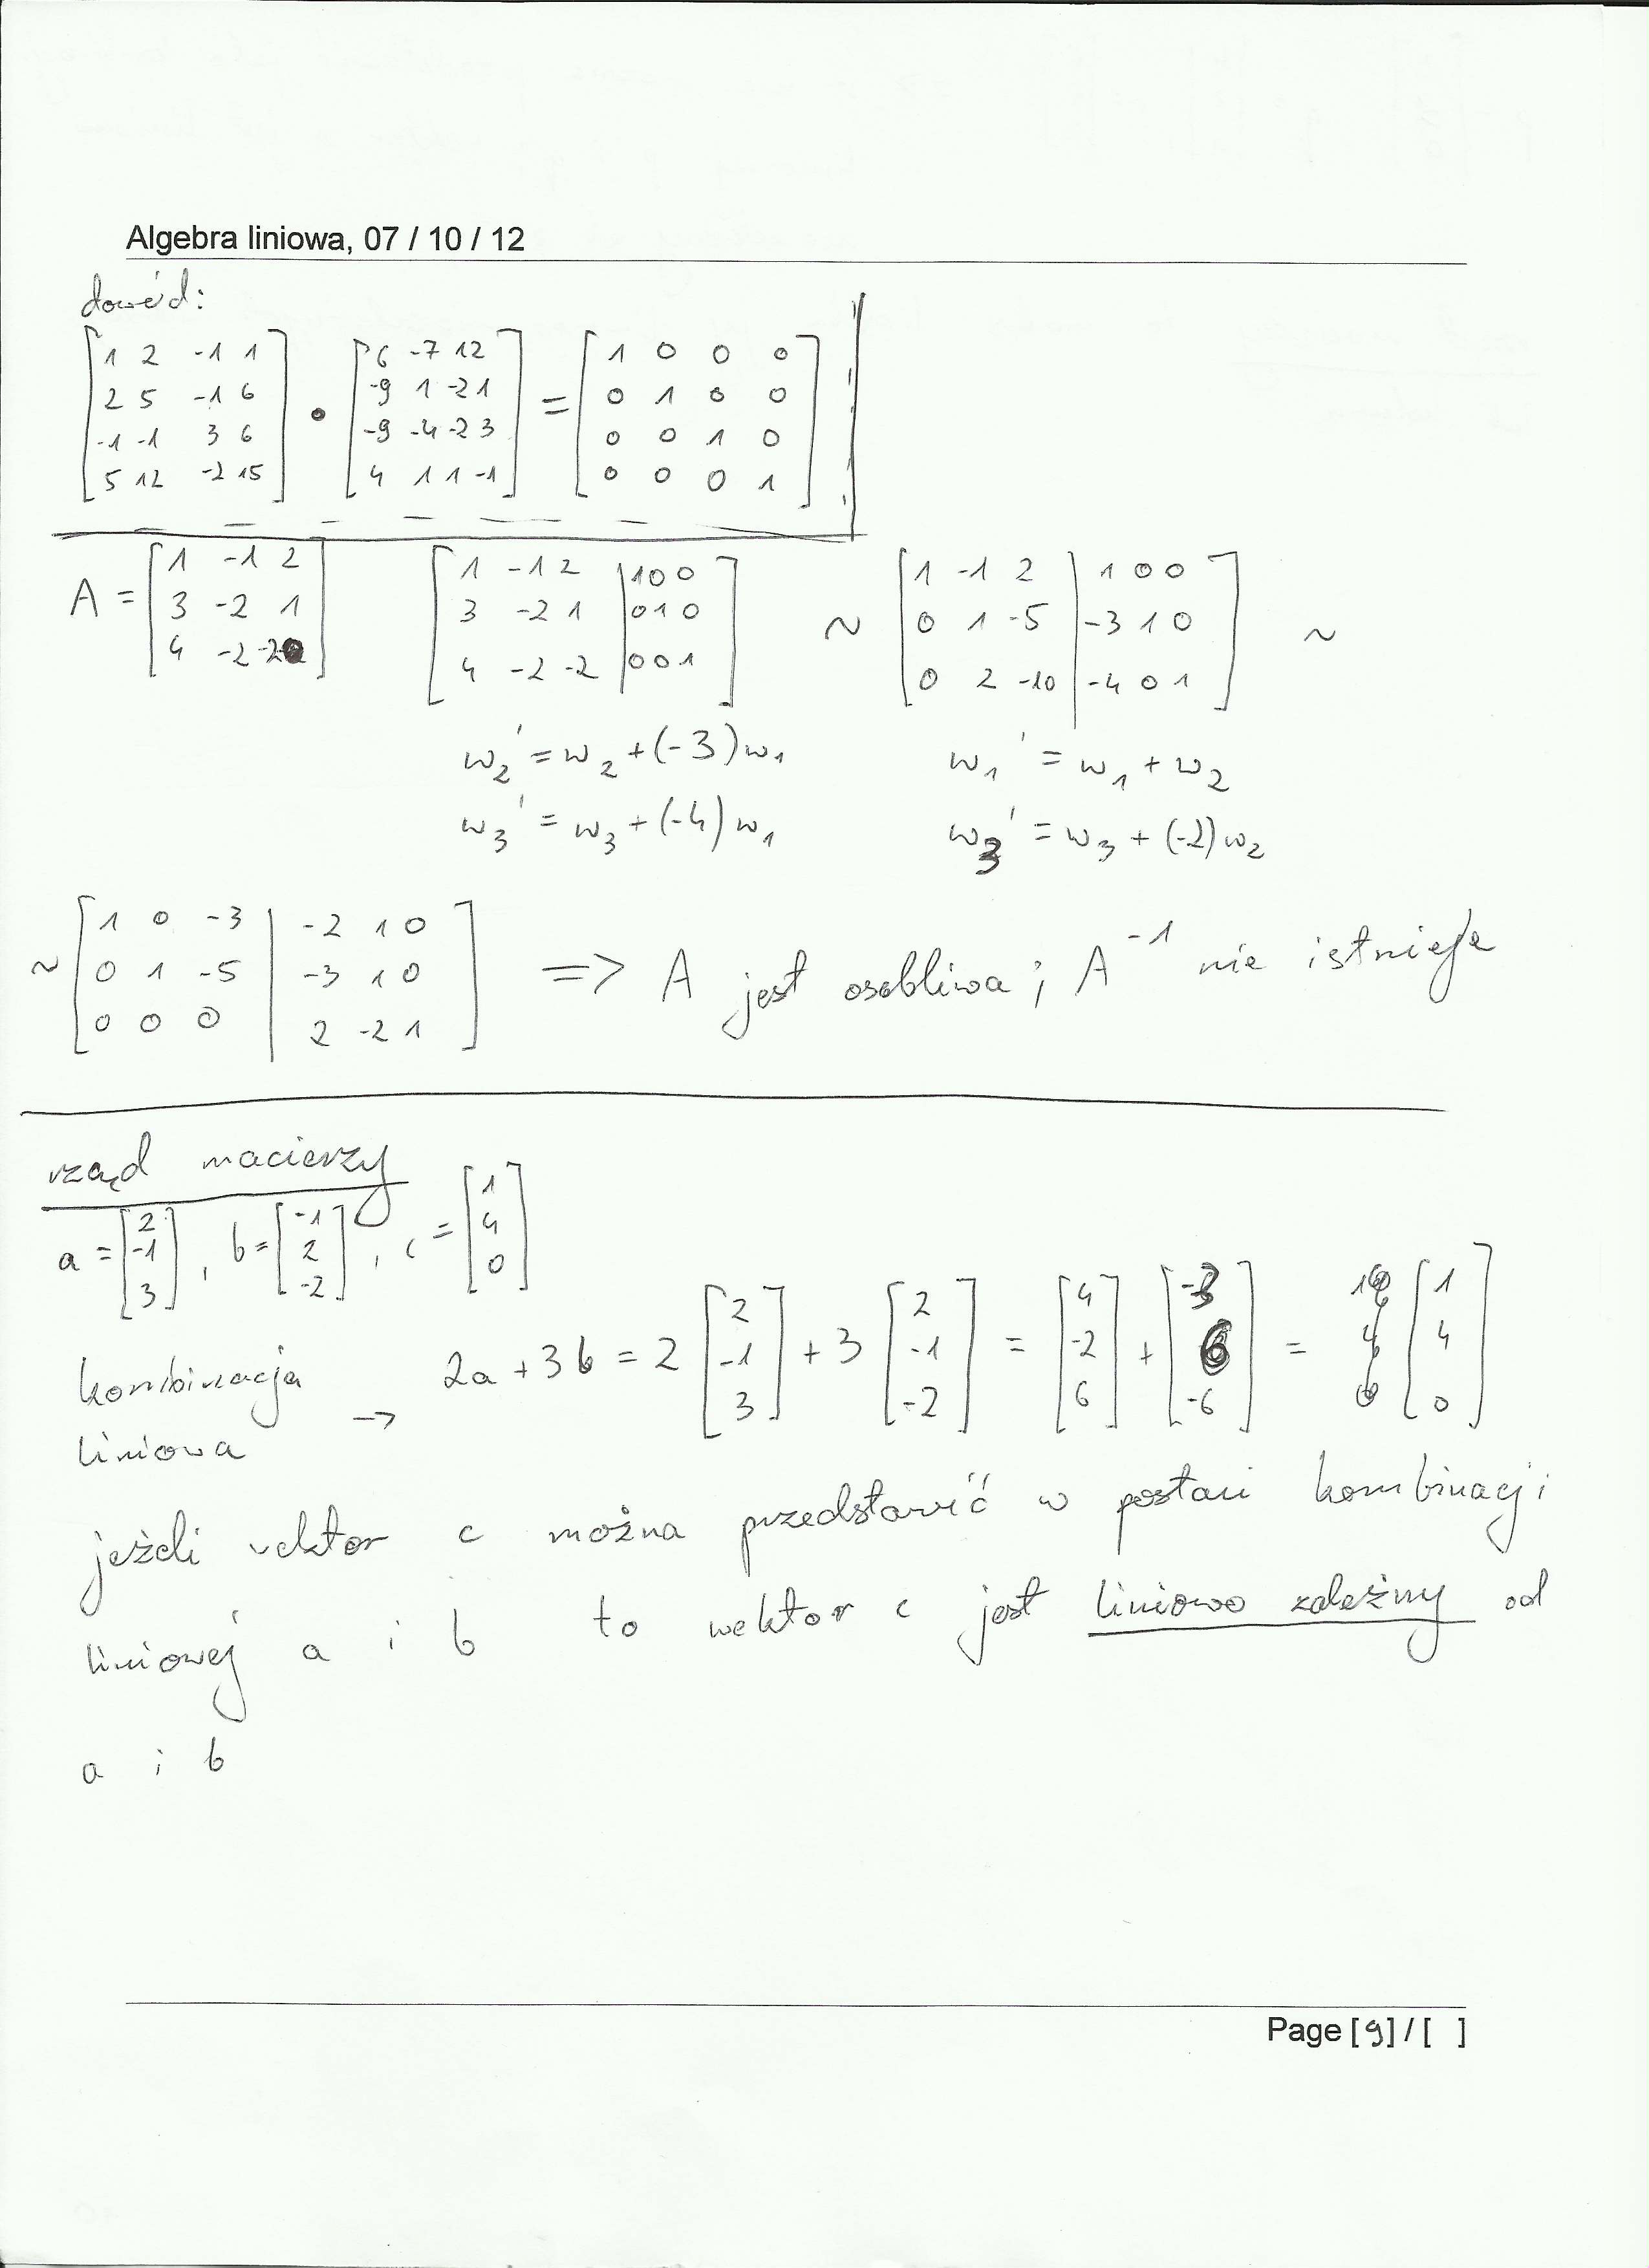 Algebra liniowa, 07 / 10 / 12
dowód:
[1 2 -1 1; 2 5 -1 6; -1 -1 3 6; 5 12 -2 15] • [6 -7 12; -9 1 -2 1; -9 -4 -2 3; 4 1 1 -1] = [1 0 0 0; 0 1 0 0; 0 0 1 0; 0 0 0 1]
A = [1 -1 2; 3 -2 1; 4 -2 -2] [1 -1 2 | 1 0 0; 3 -2 1 | 0 1 0; 4 -2 -2 | 0 0 1] ~ [1 -1 2 | 1 0 0; 0 1 -5 | -3 1 0; 0 2 -10 | -4 0 1] ~
w2' = w2 + (-3)w1 w1' = w1 + w2
w3' = w3 + (-4)w1 w3' = w3 + (-2)w2
~ [1 0 -3 | -2 1 0; 0 1 -5 | -3 1 0; 0 0 0 | 2 -2 1] => A jest osobliwa; A^-1 nie istnieje
rząd macierzy
a = [2; -1; 3], b = [-1; 2; -2], c = [1; 4; 0]
kombinacja liniowa -> 2a + 3b = 2 [2; -1; 3] + 3 [2; -1; -2] = [4; -2; 6] + [-3; 6; -6] = [1; 4; 0]
jeżeli wektor c można przedstawić w postaci kombinacji
liniowej a i b to wektor c jest liniowo zależny od
a i b
Page [9] / [ ]